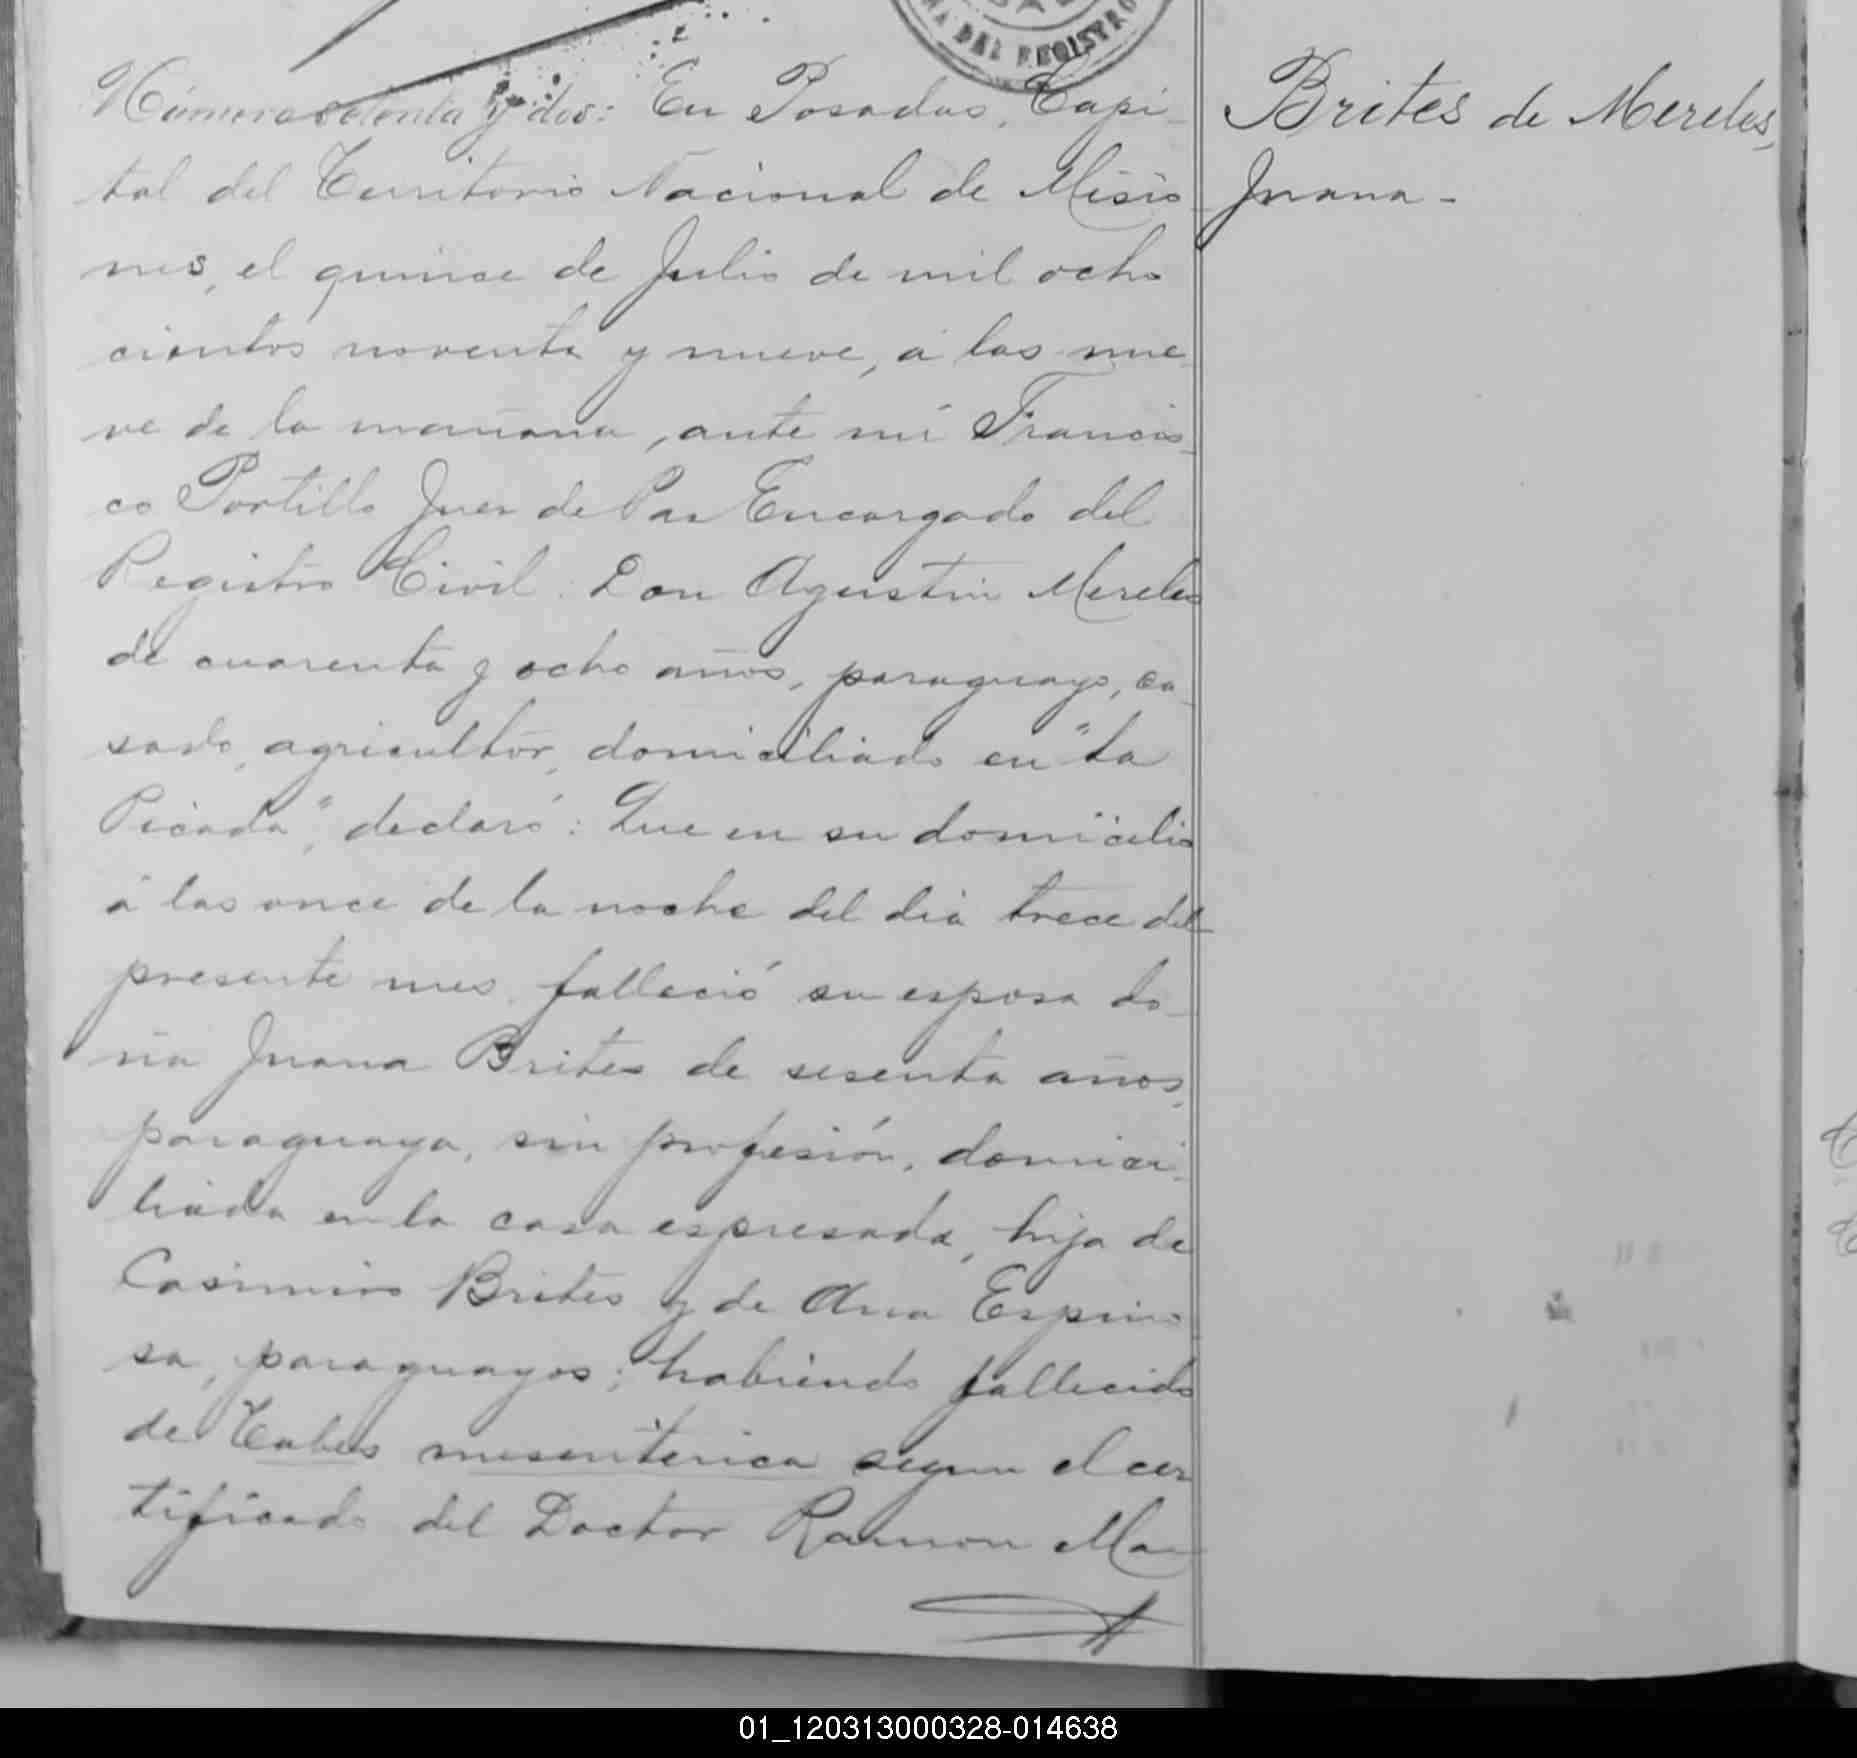 DEL REGISTRO
Número setenta y dos: En Posadas, Capi-
tal del Territorio Nacional de Misio-
nes, el quince de Julio de mil ocho
cientos noventa y nueve, á las nue-
ve de la mañana, ante mí Francis-
co Portillo Juez de Paz Encargado del
Registro Civil: Don Agustin Mereles
de cuarenta y ocho años, paraguayo, ca-
sado, agricultor, domiciliado en "La
Picada", declaró: Que en su domicilio
á las once de la noche del dia trece del
presente mes falleció su esposa do-
ña Juana Brites de sesenta años,
paraguaya, sin profesión, domici-
liada en la casa espresada, hija de
Casimiro Brites y de Ana Espino-
sa, paraguayos; habiendo fallecido
de Tabes mesenterica segun el cer
tificado del Doctor Ramon Ma-
Brites de Mereles,
Juana -
01_120313000328-014638